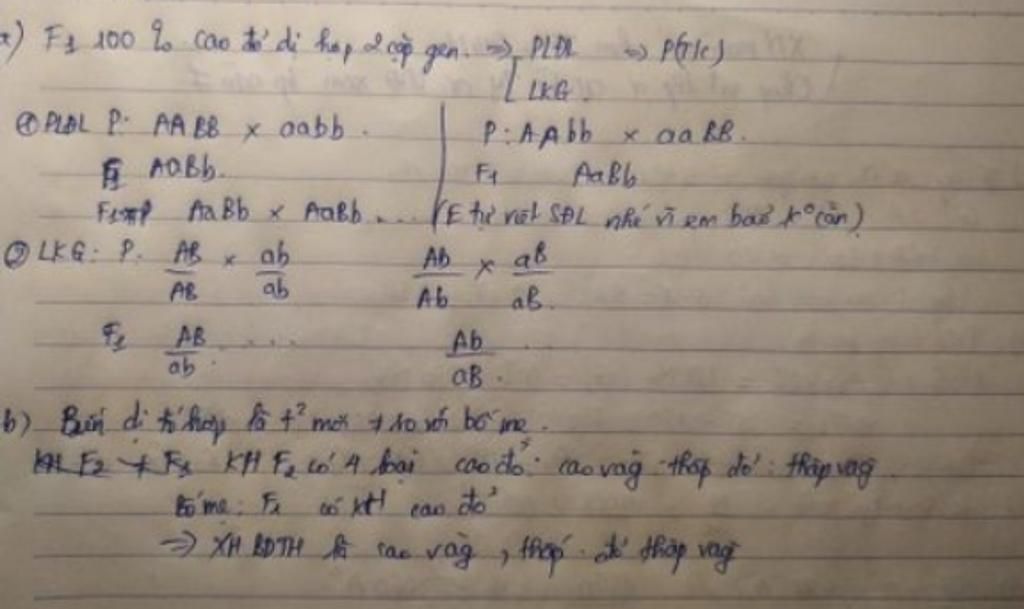 a) F1 100% cao đỏ dị hợp 2 cặp gen. => PLĐL => P(T/c)
[ LKG.
① PLĐL P: AABB x aabb. P: AAbb x aaBB.
F1 AaBb. F1 AaBb
F1 x F1 AaBb x AaBb... (E tự viết SĐL nhé vì em bảo k° cần)
② LKG: P: AB/AB x ab/ab Ab/Ab x aB/aB.
F1 AB/ab..... Ab/aB.
b) Biến dị tổ hợp là t² mới ≠ so với bố mẹ.
KH F2 ≠ F1 KH F2 có 4 loại cao đỏ: cao vàg: thấp đỏ: thấp vàg
Bố mẹ: F1 có KH cao đỏ
=> XH BDTH là cao vàg, thấp đỏ thấp vàg